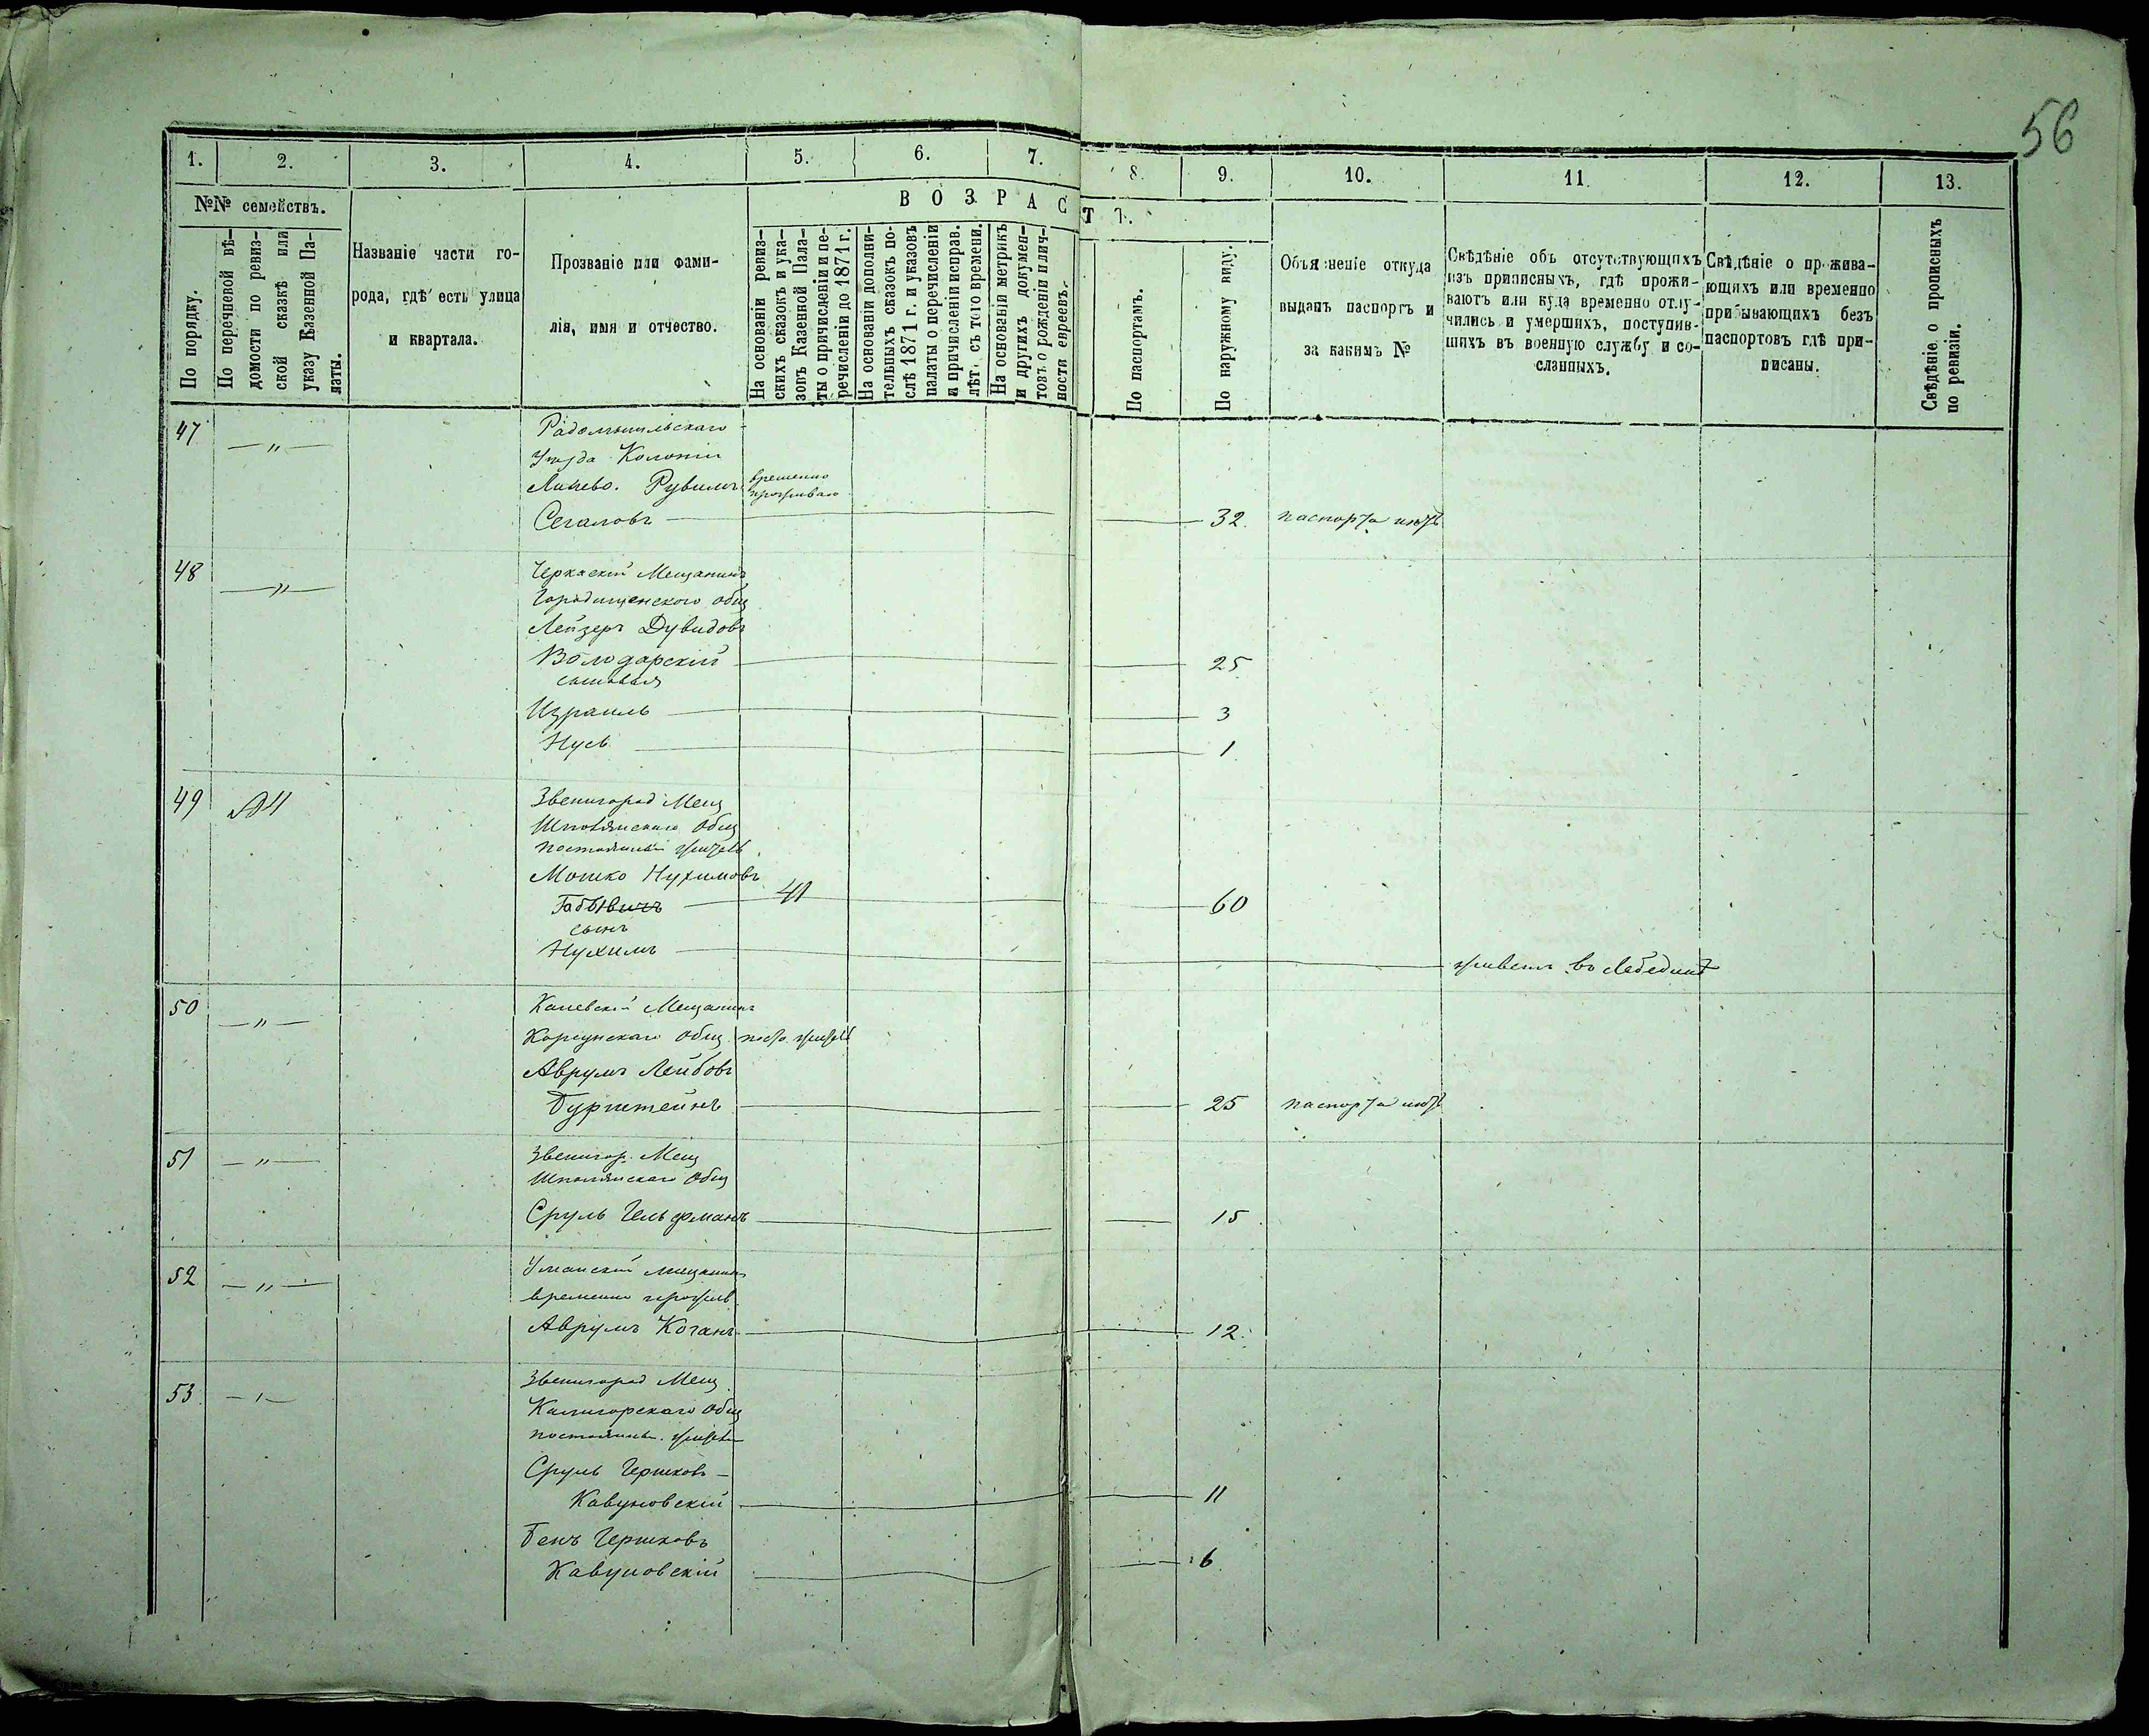 56
1. 2. 3. 4. 5. 6. 7. 8. 9. 10. 11. 12. 13.
№№ семействъ.
По порядку.
По перечневой вѣ-
домости по ревиз-
ской сказкѣ или
указу Казенной Па-
латы.
Названіе части го-
рода, гдѣ есть улица
и квартала.
Прозваніе или фами-
лія, имя и отчество.
ВОЗРАСТЪ.
На основаніи ревиз-
скихъ сказокъ и ука-
зовъ Казенной Пала-
ты о причисленіи и пе-
речисленіи до 1871 г.
На основаніи дополни-
тельныхъ сказокъ по-
слѣ 1871 г. и указовъ
палаты о перечисленіи
и причисленіи исправ.
лѣт. съ того времени.
На основаніи метрикъ
и другихъ докумен-
товъ о рожденіи и лич-
ности евреевъ.
По паспортамъ.
По наружному виду.
Объясненіе откуда
выданъ паспортъ и
за какимъ №
Свѣдѣніе объ отсутствующихъ
изъ приписныхъ, гдѣ прожи-
ваютъ или куда временно отлу-
чились и умершихъ, поступив-
шихъ въ военную службу и со-
сланныхъ.
Свѣдѣніе о прожива-
ющихъ или временно
прибывающихъ безъ
паспортовъ гдѣ при-
писаны.
Свѣдѣніе о прописныхъ
по ревизіи.
47 — " — Радомыльскаго
Уѣзда
Рувимъ временно
Сегаловъ 32. паспорта нѣтъ
48 — " — Черкаскій Мещанинъ
Городищенского общ
Лейзеръ Дувидовъ
Володарскій 25
сыновья
Израиль 3
Нусъ 1
49 Звенигород Мещ
Шполянскаго Общ
постоянный житель
Мошко Нухимовъ
41 60
сынъ
Нухимъ живетъ въ Лебединѣ
50 — " — Каневскій Мещанинъ
Корсунскаго общ. пост. житель
Аврумъ Лейбовъ
Бурштейнъ 25 паспорта нѣтъ
51 — " — Звенигор. Мещ
Шполянскаго Общ
Сруль Гельфманъ 15
52 — " — Уманскій мещанинъ
временно прожив
Аврумъ Коганъ 12.
53. Звенигород Мещ
Калигорскаго Общ
постоянн. жители
Сруль Гершковъ
Кавуновскій 11
Бенъ Гершковъ
Кавуновскій 6